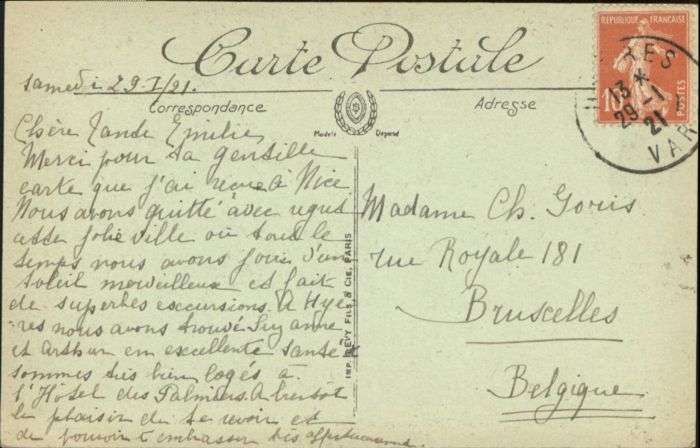 Carte Postale
REPUBLIQUE FRANÇAISE
10
POSTES
13 *
29 - 1
21
VAR
samedi 29-I/21.
Correspondance
Modèle Déposé
Adresse
Chère Tante Emilie,
Merci pour ta gentille
carte que j'ai reçue à Nice
Nous avons quitté avec regret
cette jolie ville où tout le
temps nous avons joui d'un
soleil merveilleux et fait
de superbes excursions. A Hyè
res nous avons trouvé Suzanne
et Arthur en excellente santé &
sommes très bien logés à
l'Hôtel des Palmiers. A bientôt
le plaisir de te revoir et
de pouvoir t'embrasser très affectueusement
IMP. LÉVY FILS & CIE, PARIS
Madame Ch. Goris
rue Royale 181
Bruxelles
Belgique